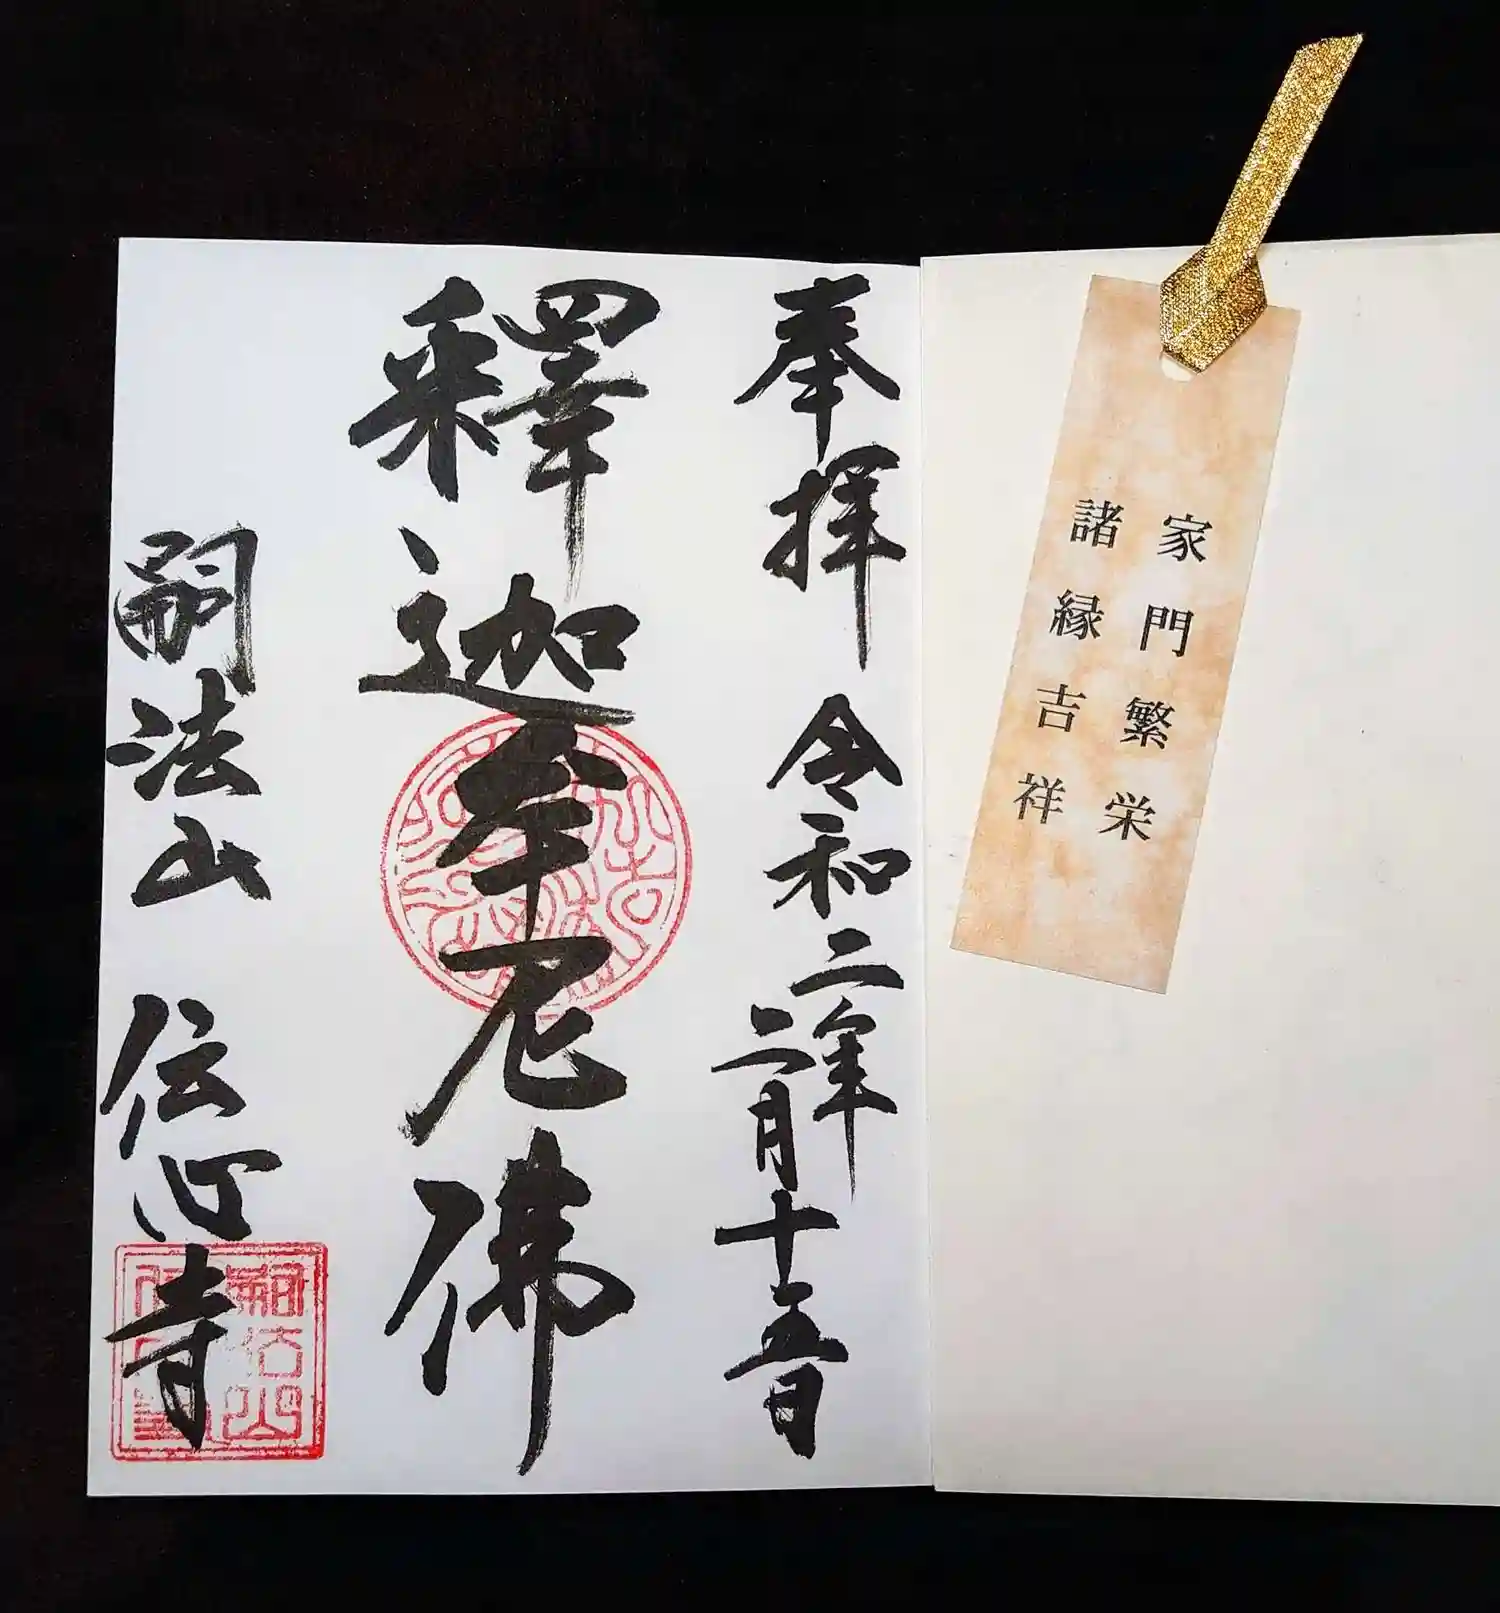 家門繁栄
諸縁吉祥
奉拝 令和二年
二月十五日
釋迦牟尼佛
嗣法山 伝心寺